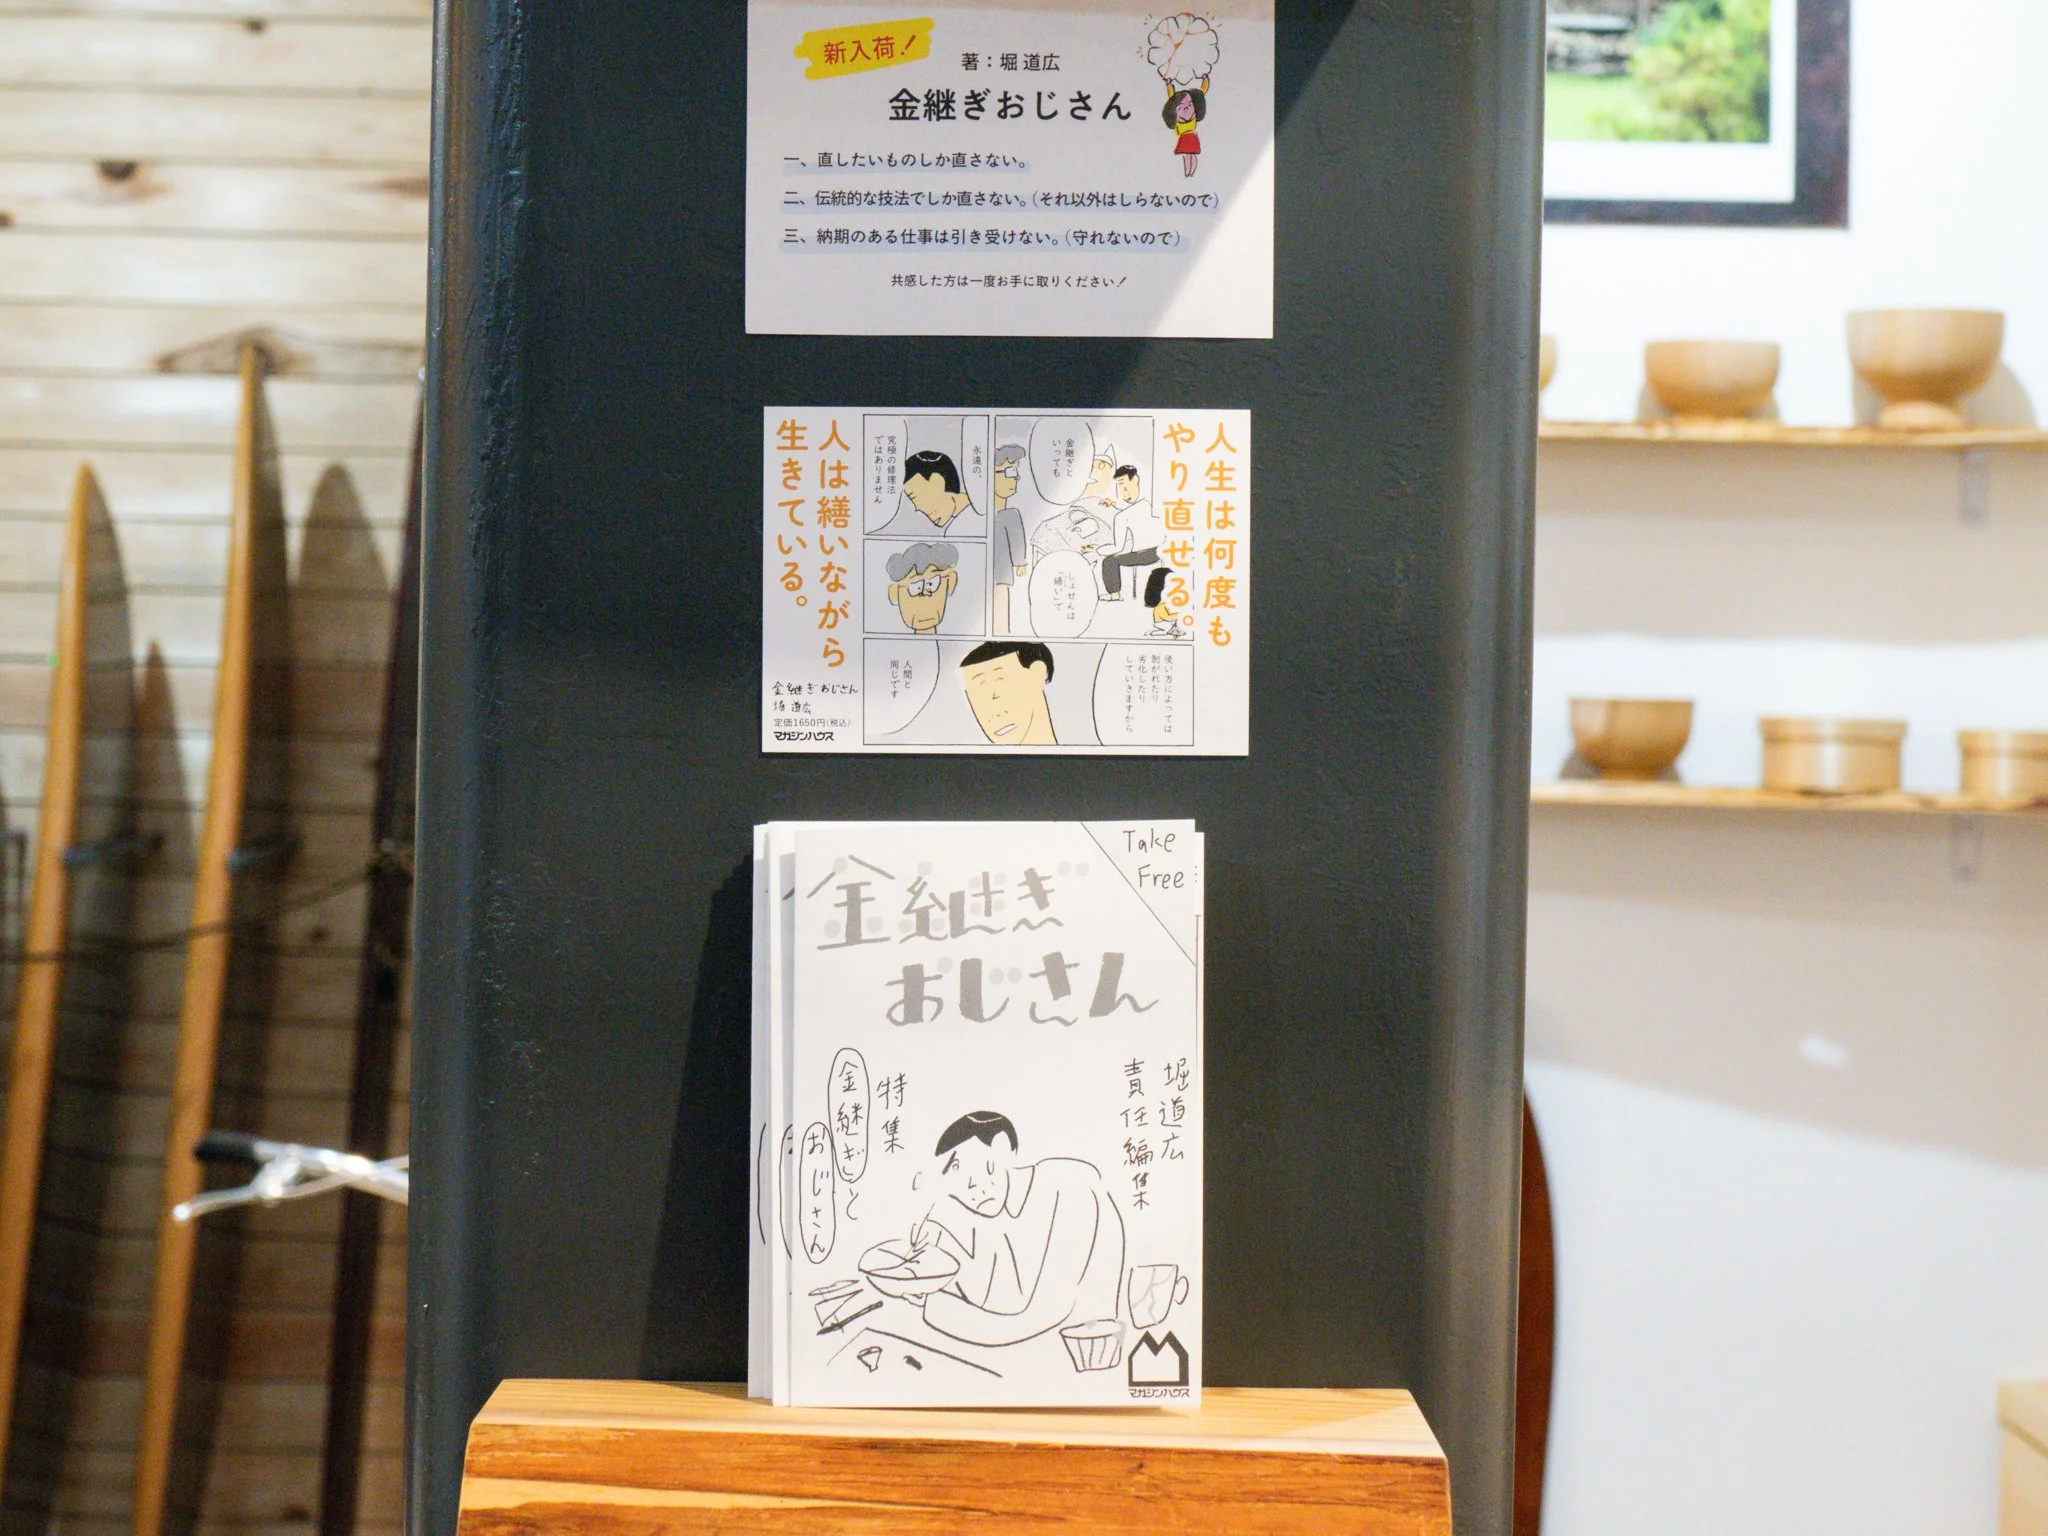 新入荷!
著:堀 道広
金継ぎおじさん
一、直したいものしか直さない。
二、伝統的な技法でしか直さない。(それ以外はしらないので)
三、納期のある仕事は引き受けない。(守れないので)
共感した方は一度お手に取りください!
人生は何度も
やり直せる。
金継ぎと
いっても
しょせんは
「繕い」で
永遠の、
究極の修理法
ではありません
使い方によっては
剥がれたり
劣化したり
していきますから
人間と
同じです
人は繕いながら
生きている。
金継ぎおじさん
堀 道広
定価1650円(税込)
マガジンハウス
Take
Free
金継ぎ
おじさん
堀道広
責任編集
特集
金継ぎと
おじさん
マガジンハウス